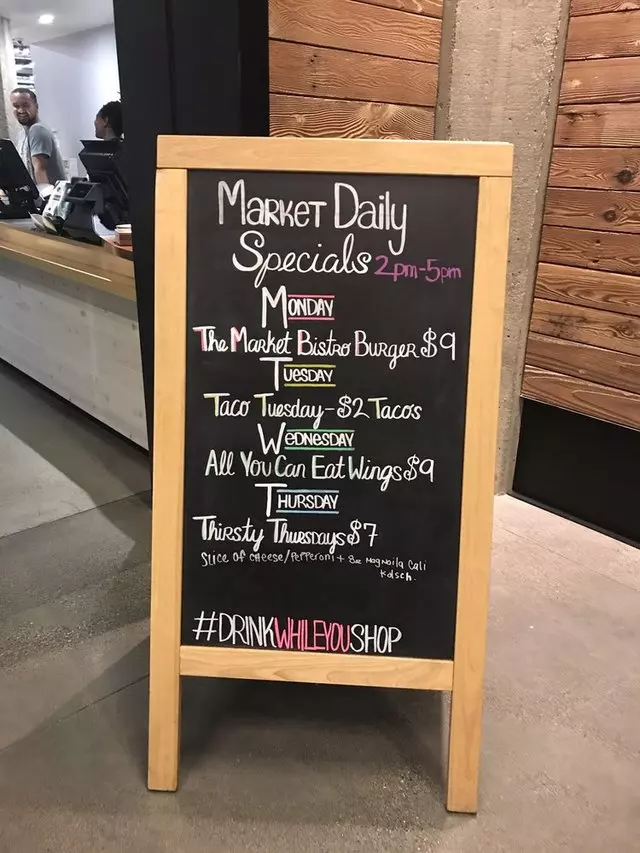 Market Daily
Specials 2pm-5pm
Monday
The Market Bistro Burger $9
Tuesday
Taco Tuesday - $2 Tacos
Wednesday
All You Can Eat Wings $9
Thursday
Thirsty Thursdays $7
Slice of cheese/Pepperoni + 8oz Magnolia Cali
Kolsch.
#DRINKWHILEYOUSHOP